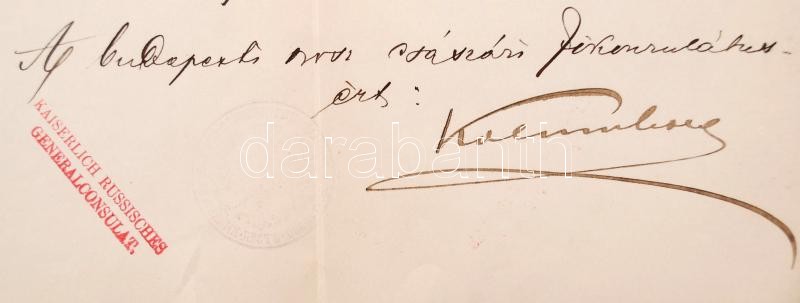 A budapesti orosz császári főkonzulátus-
ért:
KAISERLICH RUSSISCHES
GENERALCONSULAT.
darabanth